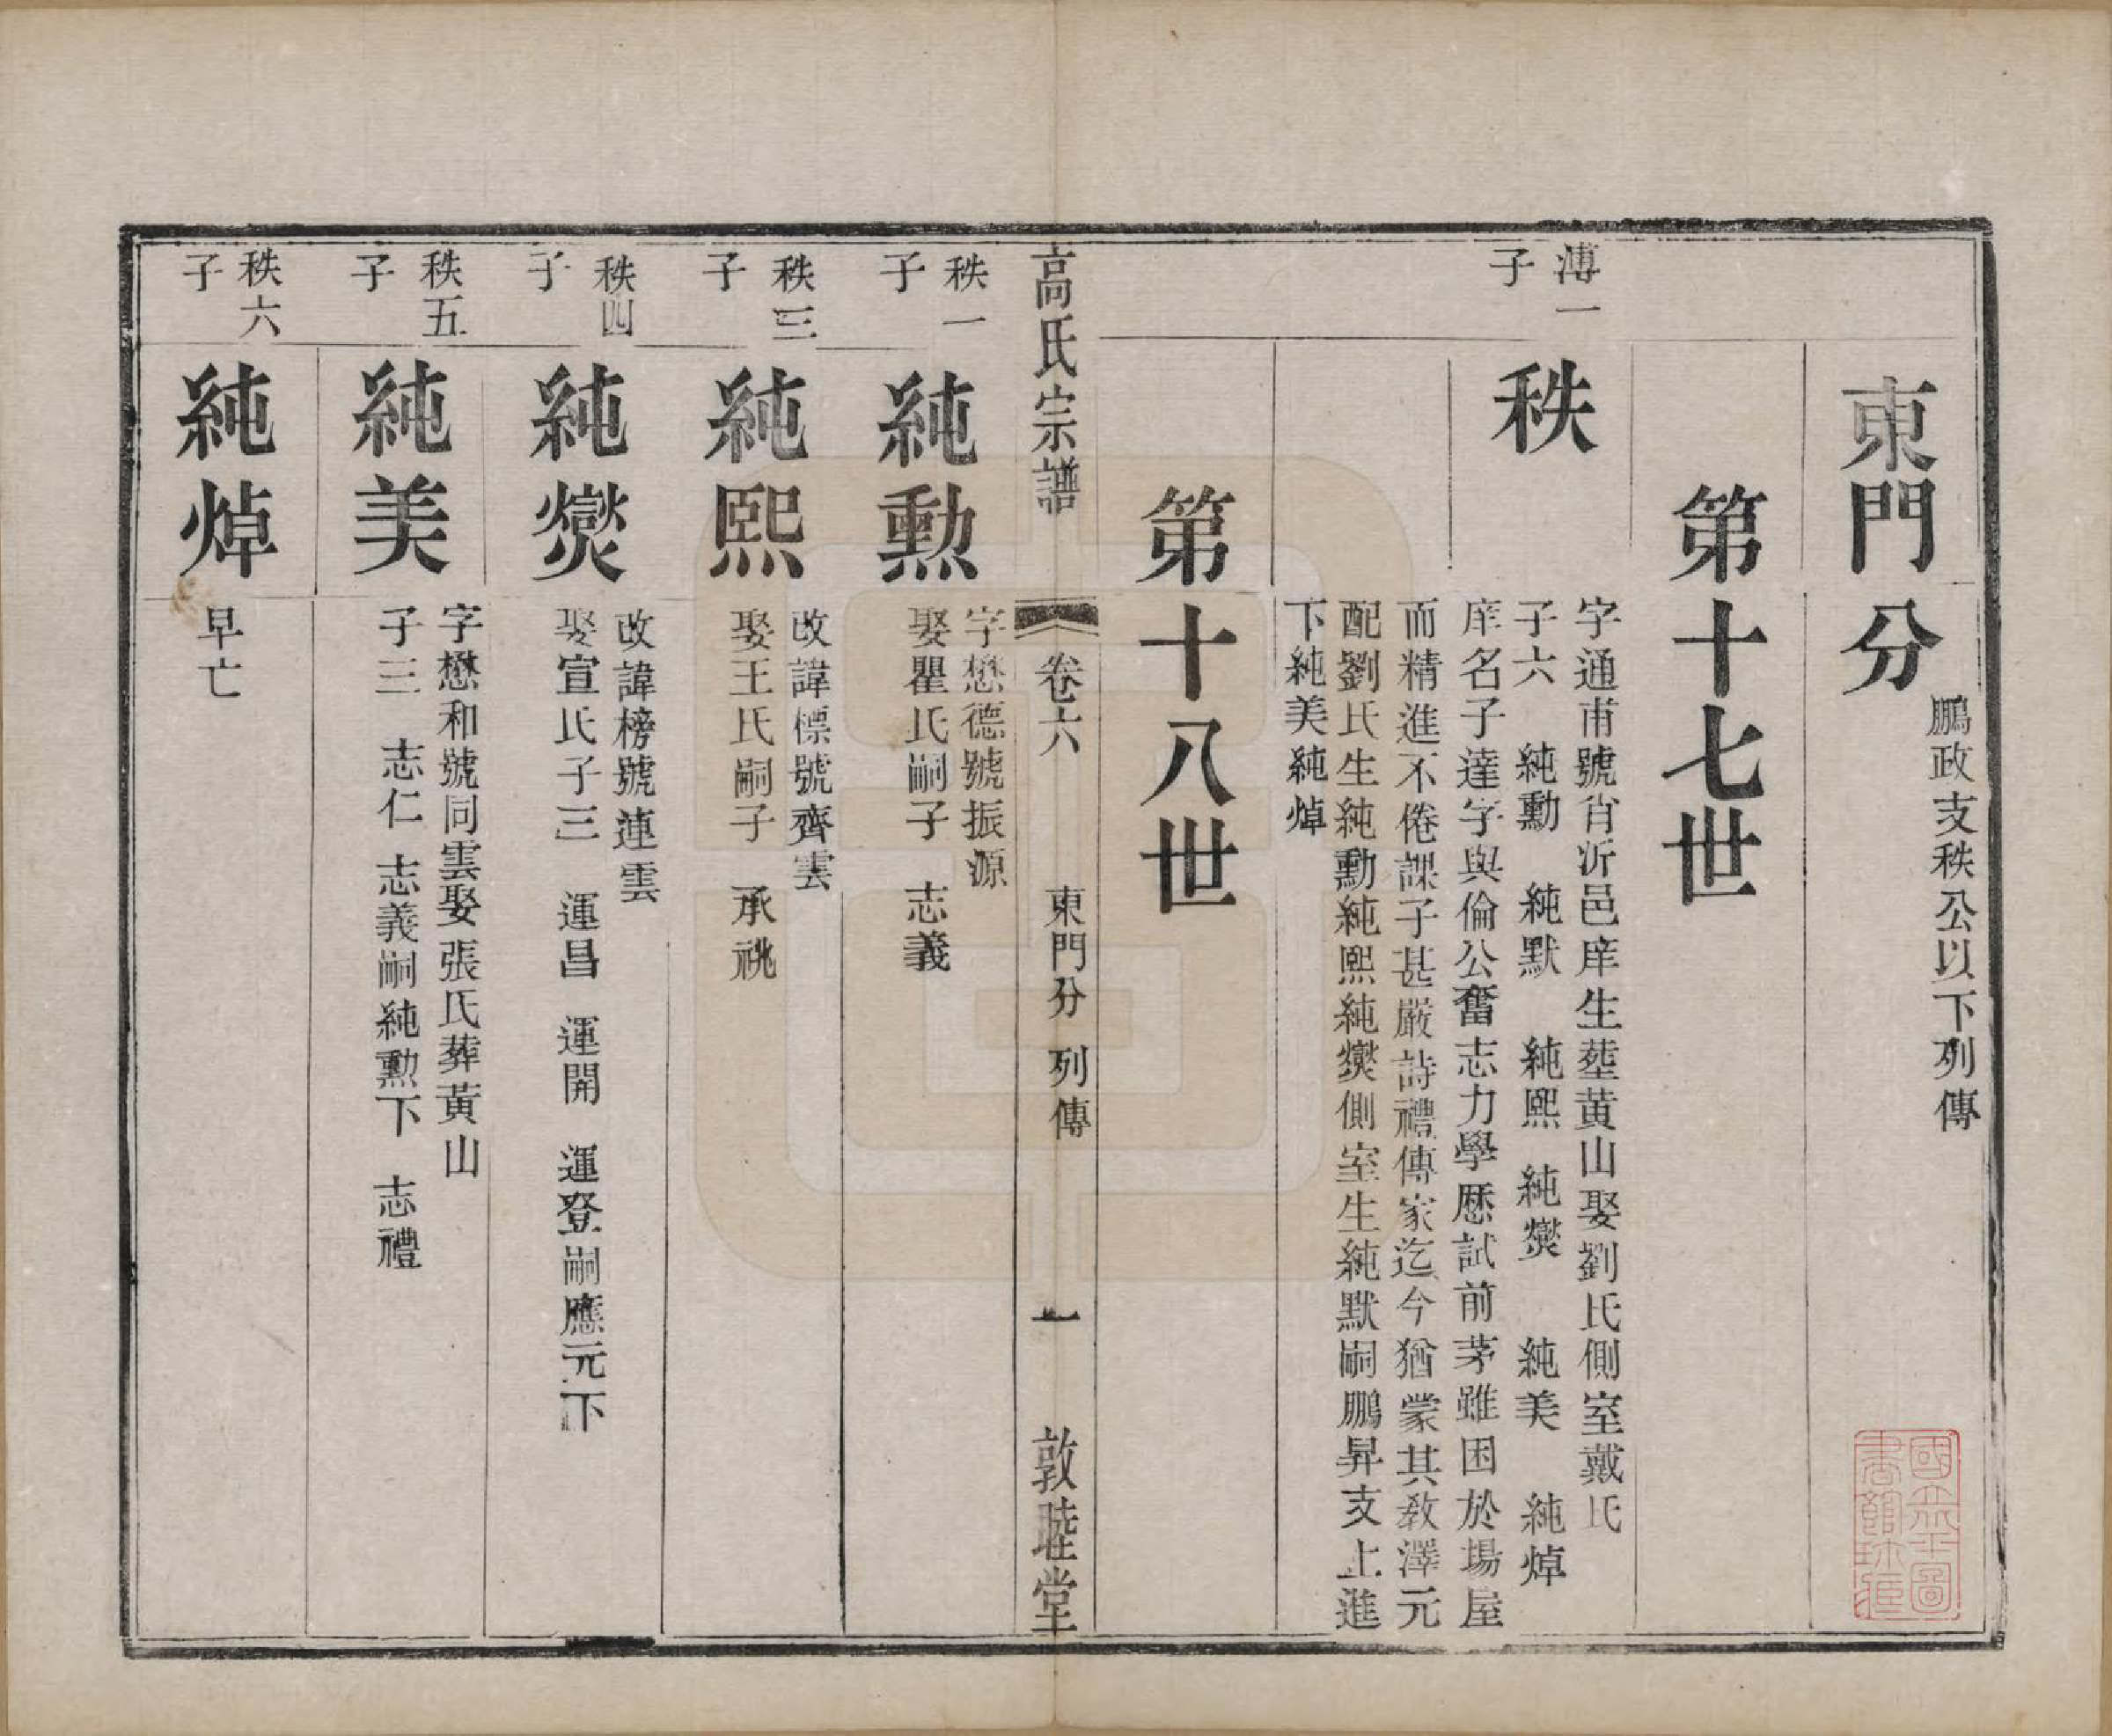 東門分
鵬政支秩公以下列傳
第十七世
溥一
子
秩
字通甫號肖沂邑庠生塟黃山娶劉氏側室戴氏
子六 純勳 純默 純熙 純爕 純美 純焯
庠名子達字與倫公奮志力學歷試前茅雖困於場屋
而精進不倦課子甚嚴詩禮傳家迄今猶蒙其教澤元
配劉氏生純勳純熙純爕側室生純默嗣鵬昇支上進
下純美純焯
第十八世
高氏宗譜
卷六
東門分 列傳
一
敦睦堂
秩一
子
純勳
字懋德號振源
娶瞿氏嗣子 志義
秩三
子
純熙
改諱標號齊雲
娶王氏嗣子 承祧
秩四
子
純爕
改諱榜號連雲
娶宣氏子三 運昌 運開 運登嗣應元下
秩五
子
純美
字懋和號同雲娶張氏葬黃山
子三 志仁 志義嗣純勳下 志禮
秩六
子
純焯
早亡